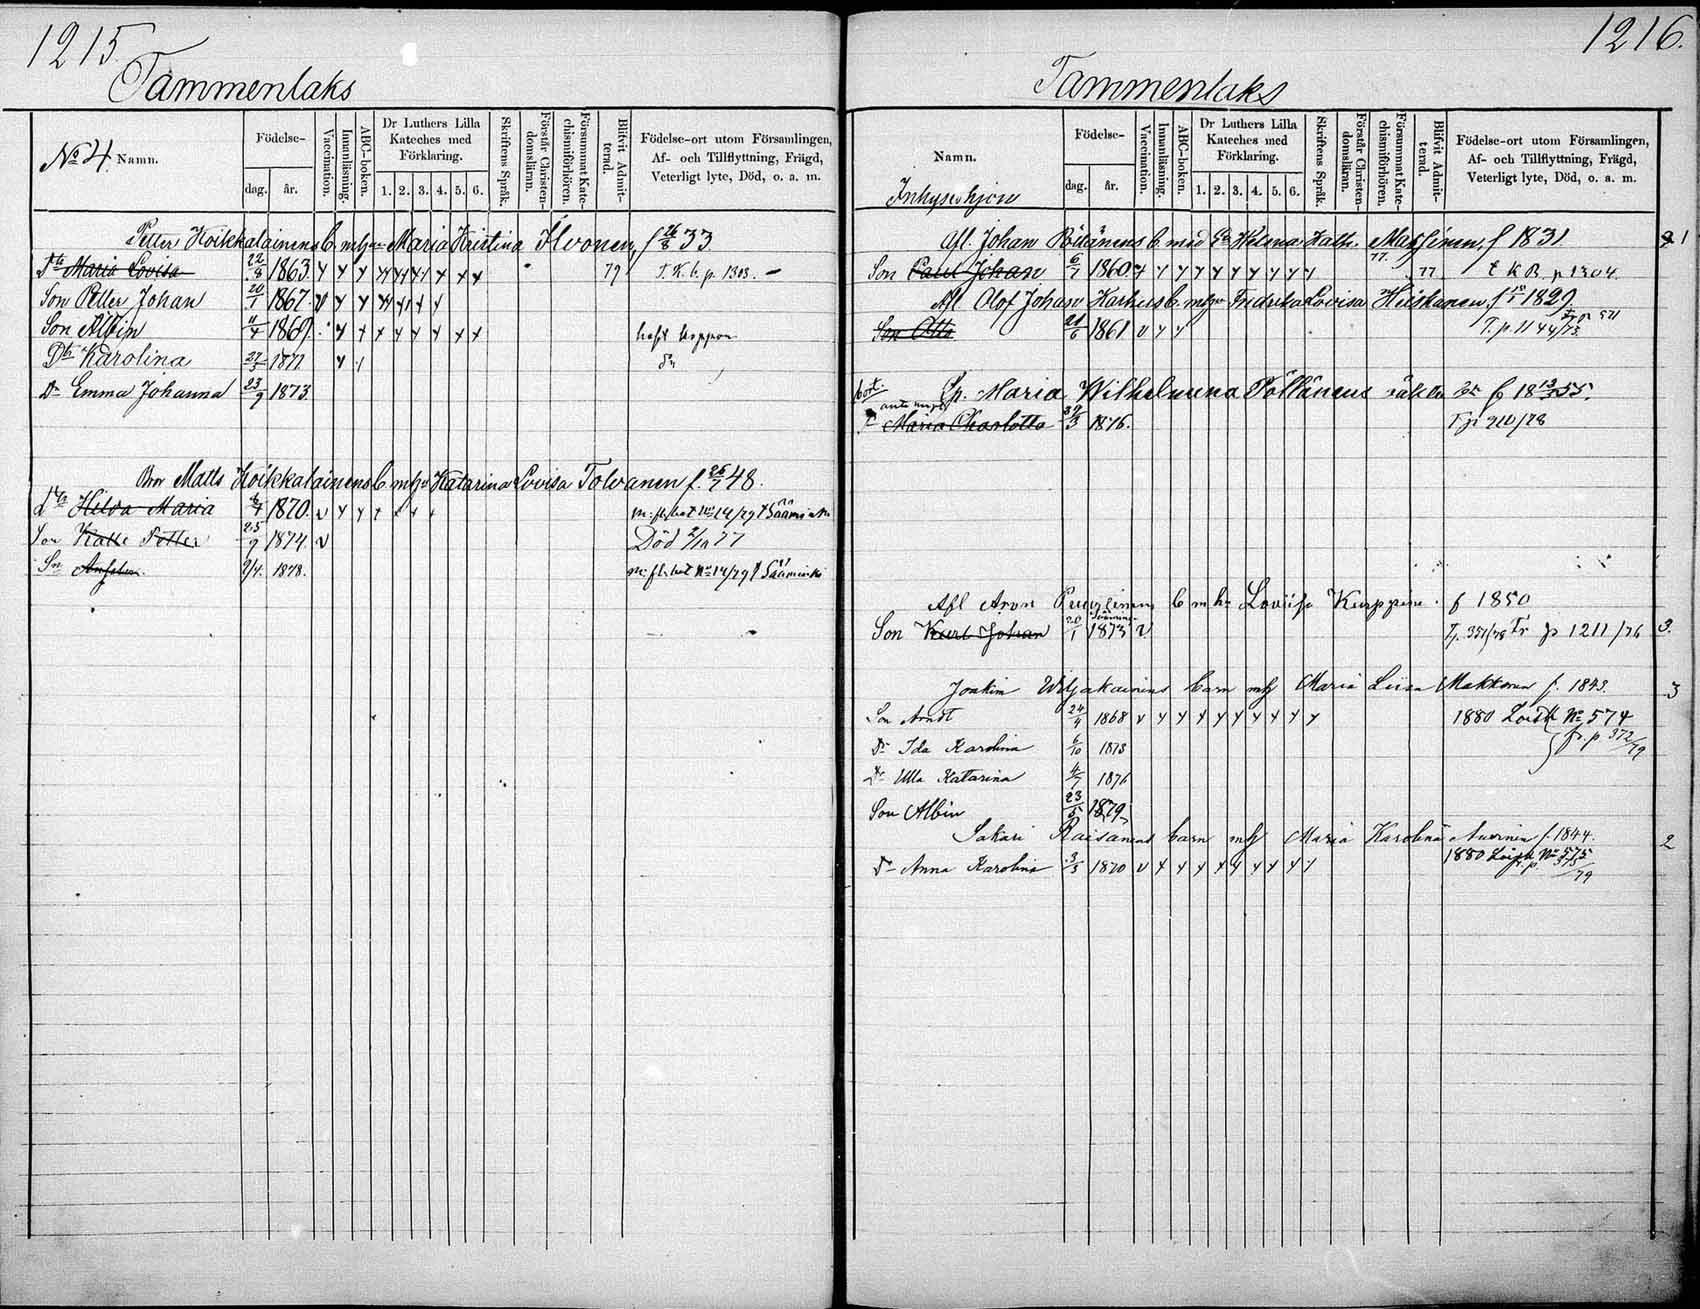 1215.
Tammenlaks
No 4. Namn.
Födelse-
dag. år.
Vaccination.
Innanläsning.
ABC-boken.
Dr Luthers Lilla Kateches med Förklaring.
1. 2. 3. 4. 5. 6.
Skriftens Språk.
Förstår Christendomsläran.
Försummat Katechismiförhören.
Blifvit Admitterad.
Födelse-ort utom Församlingen,
Af- och Tillflyttning, Frägd,
Veterligt lyte, Död, o. a. m.
Petter Hoikkalainens b. m. hu Maria Kristina Ilvonen, f 26/8 33
Dtr Maria Lovisa 22/8 1863. 79 T. K. b. p. 1303.
Son Petter Johan 20/1 1867.
Son Albin 11/4 1869. haft koppor
Dtr Karolina 27/3 1871
Dr Emma Johanna 23/9 1873.
Bror Matts Hoikkalainens b m hu Katarina Lovisa Tolvanen f. 25/7 48.
Dtr Hilda Maria 6/4 1870. m. fl. bet No 14/79 t Sääminki
Son Kalle Petter 25/9 1874. Död 2/10 77
Sn Anselm 9/4. 1878. m. fl. bet No 14/79 t Sääminki
1216.
Tammenlaks
Namn.
Inhyseshjon
Födelse-
dag. år.
Vaccination.
Innanläsning.
ABC-boken.
Dr Luthers Lilla Kateches med Förklaring.
1. 2. 3. 4. 5. 6.
Skriftens Språk.
Förstår Christendomsläran.
Försummat Katechismiförhören.
Blifvit Admitterad.
Födelse-ort utom Församlingen,
Af- och Tillflyttning, Frägd,
Veterligt lyte, Död, o. a. m.
Afl. Johan Pöllänens b med Helena Kath. Massinen, f 1831 1
Son Paul Johan 6/1 1860. 77 t K B p 1304.
Afl Olof Johan Karhus b. m hu Fredrika Lovisa Heiskanen, f 1829.
Son Otto 21/6 1861 T. p. 1144/73.
Maria Wilhelmina Pöllänens oäkta f 18 13/3 55.
Maria Charlotta 1876. T p 910/78
Afl Aron Pursiinens b m hu Loviisa Kurppinen f 1850
Son Karl Johan 20/1 1873 T p. 351/78 Fr p 1211/76 3.
Joakim Wiljakainens barn m h Maria Liisa Makkonen f. 1843. 3
Son Arndt 24/4 1868 1880 No 574
Dr Ida Karolina 6/10 1873 fr. p 372/79
Dr Ulla Katarina 4/7 1876
Son Albin 23/5 1879
Sakari Raisanens barn m h Maria Karolina Auvinen f. 1844. 2
Dr Anna Karolina 3/3 1870 1880 No 575
fr. p. 373/79